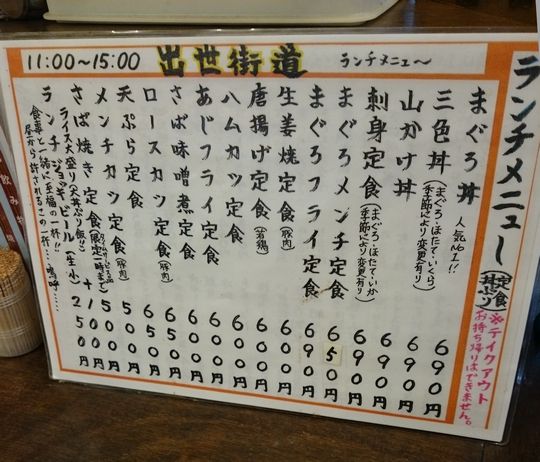 11:00〜15:00 出世街道 ランチメニュ〜
ランチメニュー(定食 丼ぶり)
※テイクアウト
お持ち帰りはできません。
まぐろ丼 人気No1!! 690円
三色丼(まぐろ・ほたて・いくら)(季節により変更有り) 690円
山かけ丼 690円
刺身定食(まぐろ・ほたて・いか)(季節により変更有り) 690円
まぐろメンチ定食 650円
まぐろフライ定食 690円
生姜焼定食(豚肉) 600円
唐揚げ定食(若鶏) 600円
ハムカツ定食 600円
あじフライ定食 600円
さば味噌煮定食 600円
ロースカツ定食(豚肉) 650円
天ぷら定食 600円
メンチカツ定食(豚肉) 500円
さば焼き定食(限定一時まで) 500円
ライス大盛り(大丼ぶり飯!!) +100円
ランチジョッキビール(生小) 250円
食事と一緒に至福の一杯!!
昼から許されるこの一杯…嗚呼…